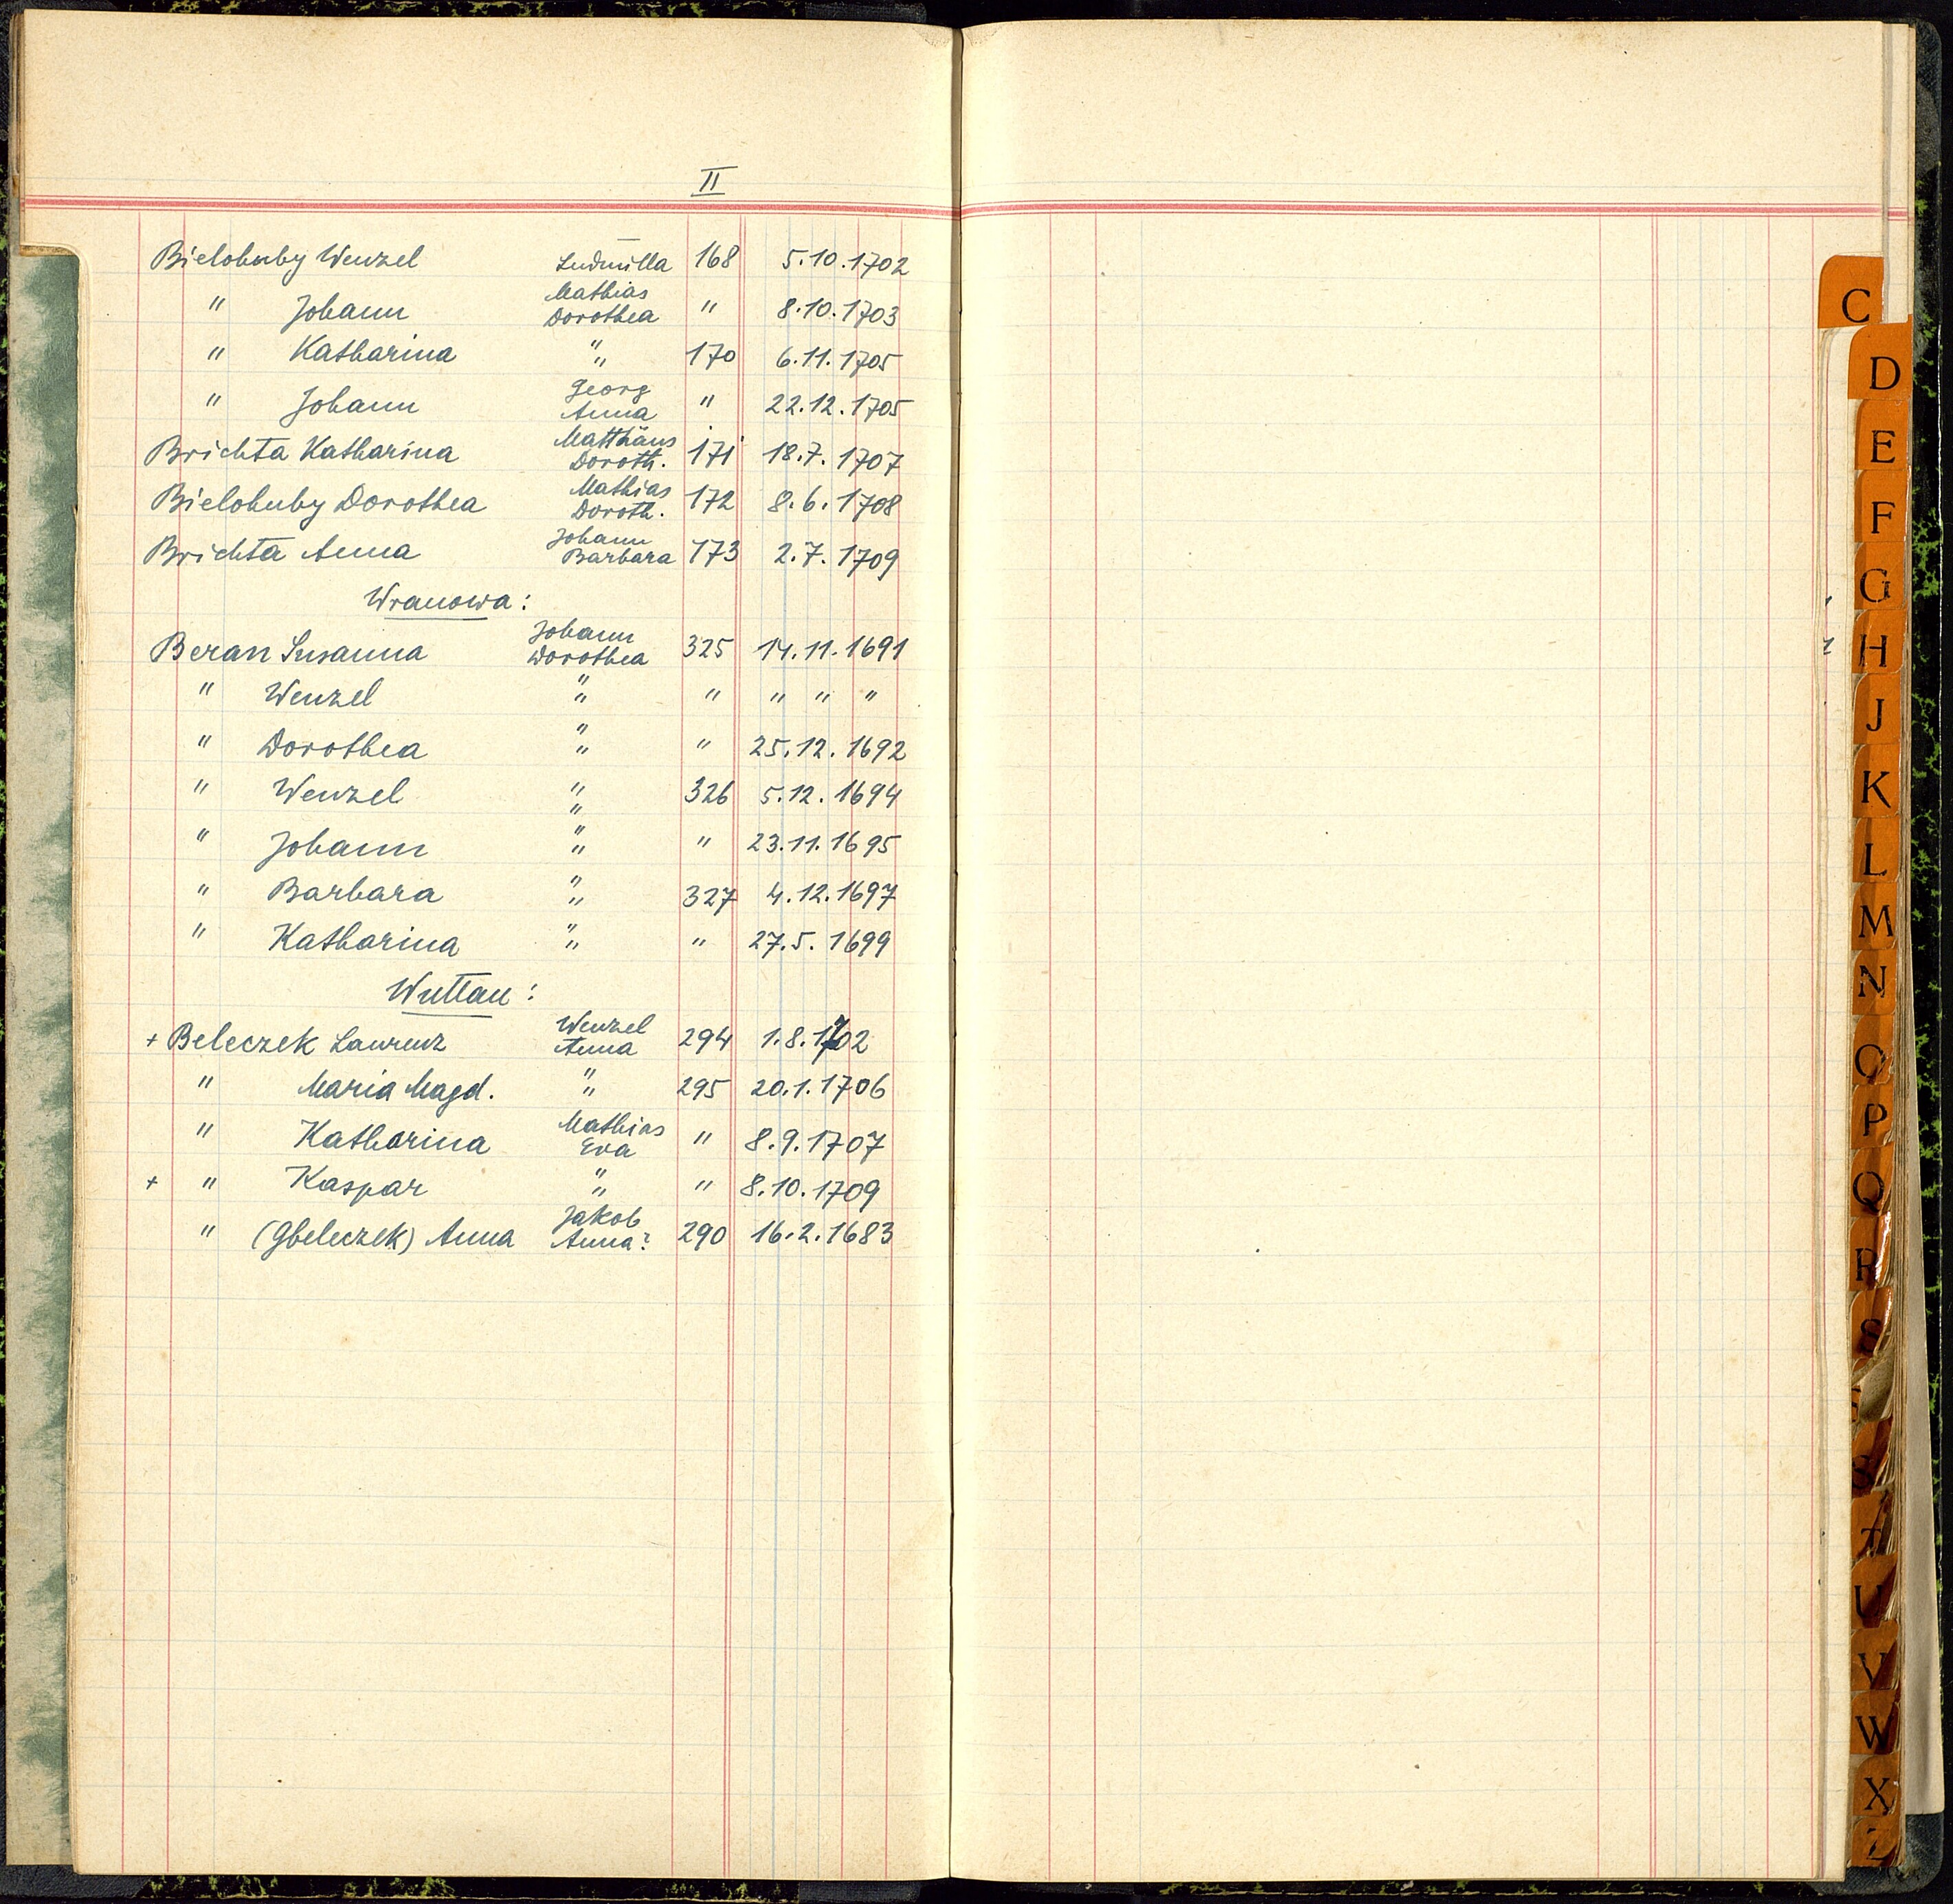 II
Bielohuby Wenzel Ludmilla 168 5.10.1702
" Johann Mathias Dorothea " 8.10.1703
" Katharina " " 170 6.11.1705
" Johann Georg Anna " 22.12.1705
Brichta Katharina Matthäus Doroth. 171 18.7.1707
Bielohuby Dorothea Mathias Doroth. 172 8.6.1708
Brichta Anna Johann Barbara 173 2.7.1709
Wranowa:
Beran Susanna Johann Dorothea 325 14.11.1691
" Wenzel " " " " " "
" Dorothea " " " 25.12.1692
" Wenzel " " 326 5.12.1694
" Johann " " " 23.11.1695
" Barbara " " 327 4.12.1697
" Katharina " " " 27.5.1699
Wuttau:
+ Beleczek Laurenz Wenzel Anna 294 1.8.1702
" Maria Magd. " " 295 20.1.1706
" Katharina Mathias Eva " 8.9.1707
+ " Kaspar " " " 8.10.1709
" (Gbeleczek) Anna Jakob Anna? 290 16.2.1683
C
D
E
F
G
H
J
K
L
M
N
O
P
Q
R
S
T
U
V
W
X
Z